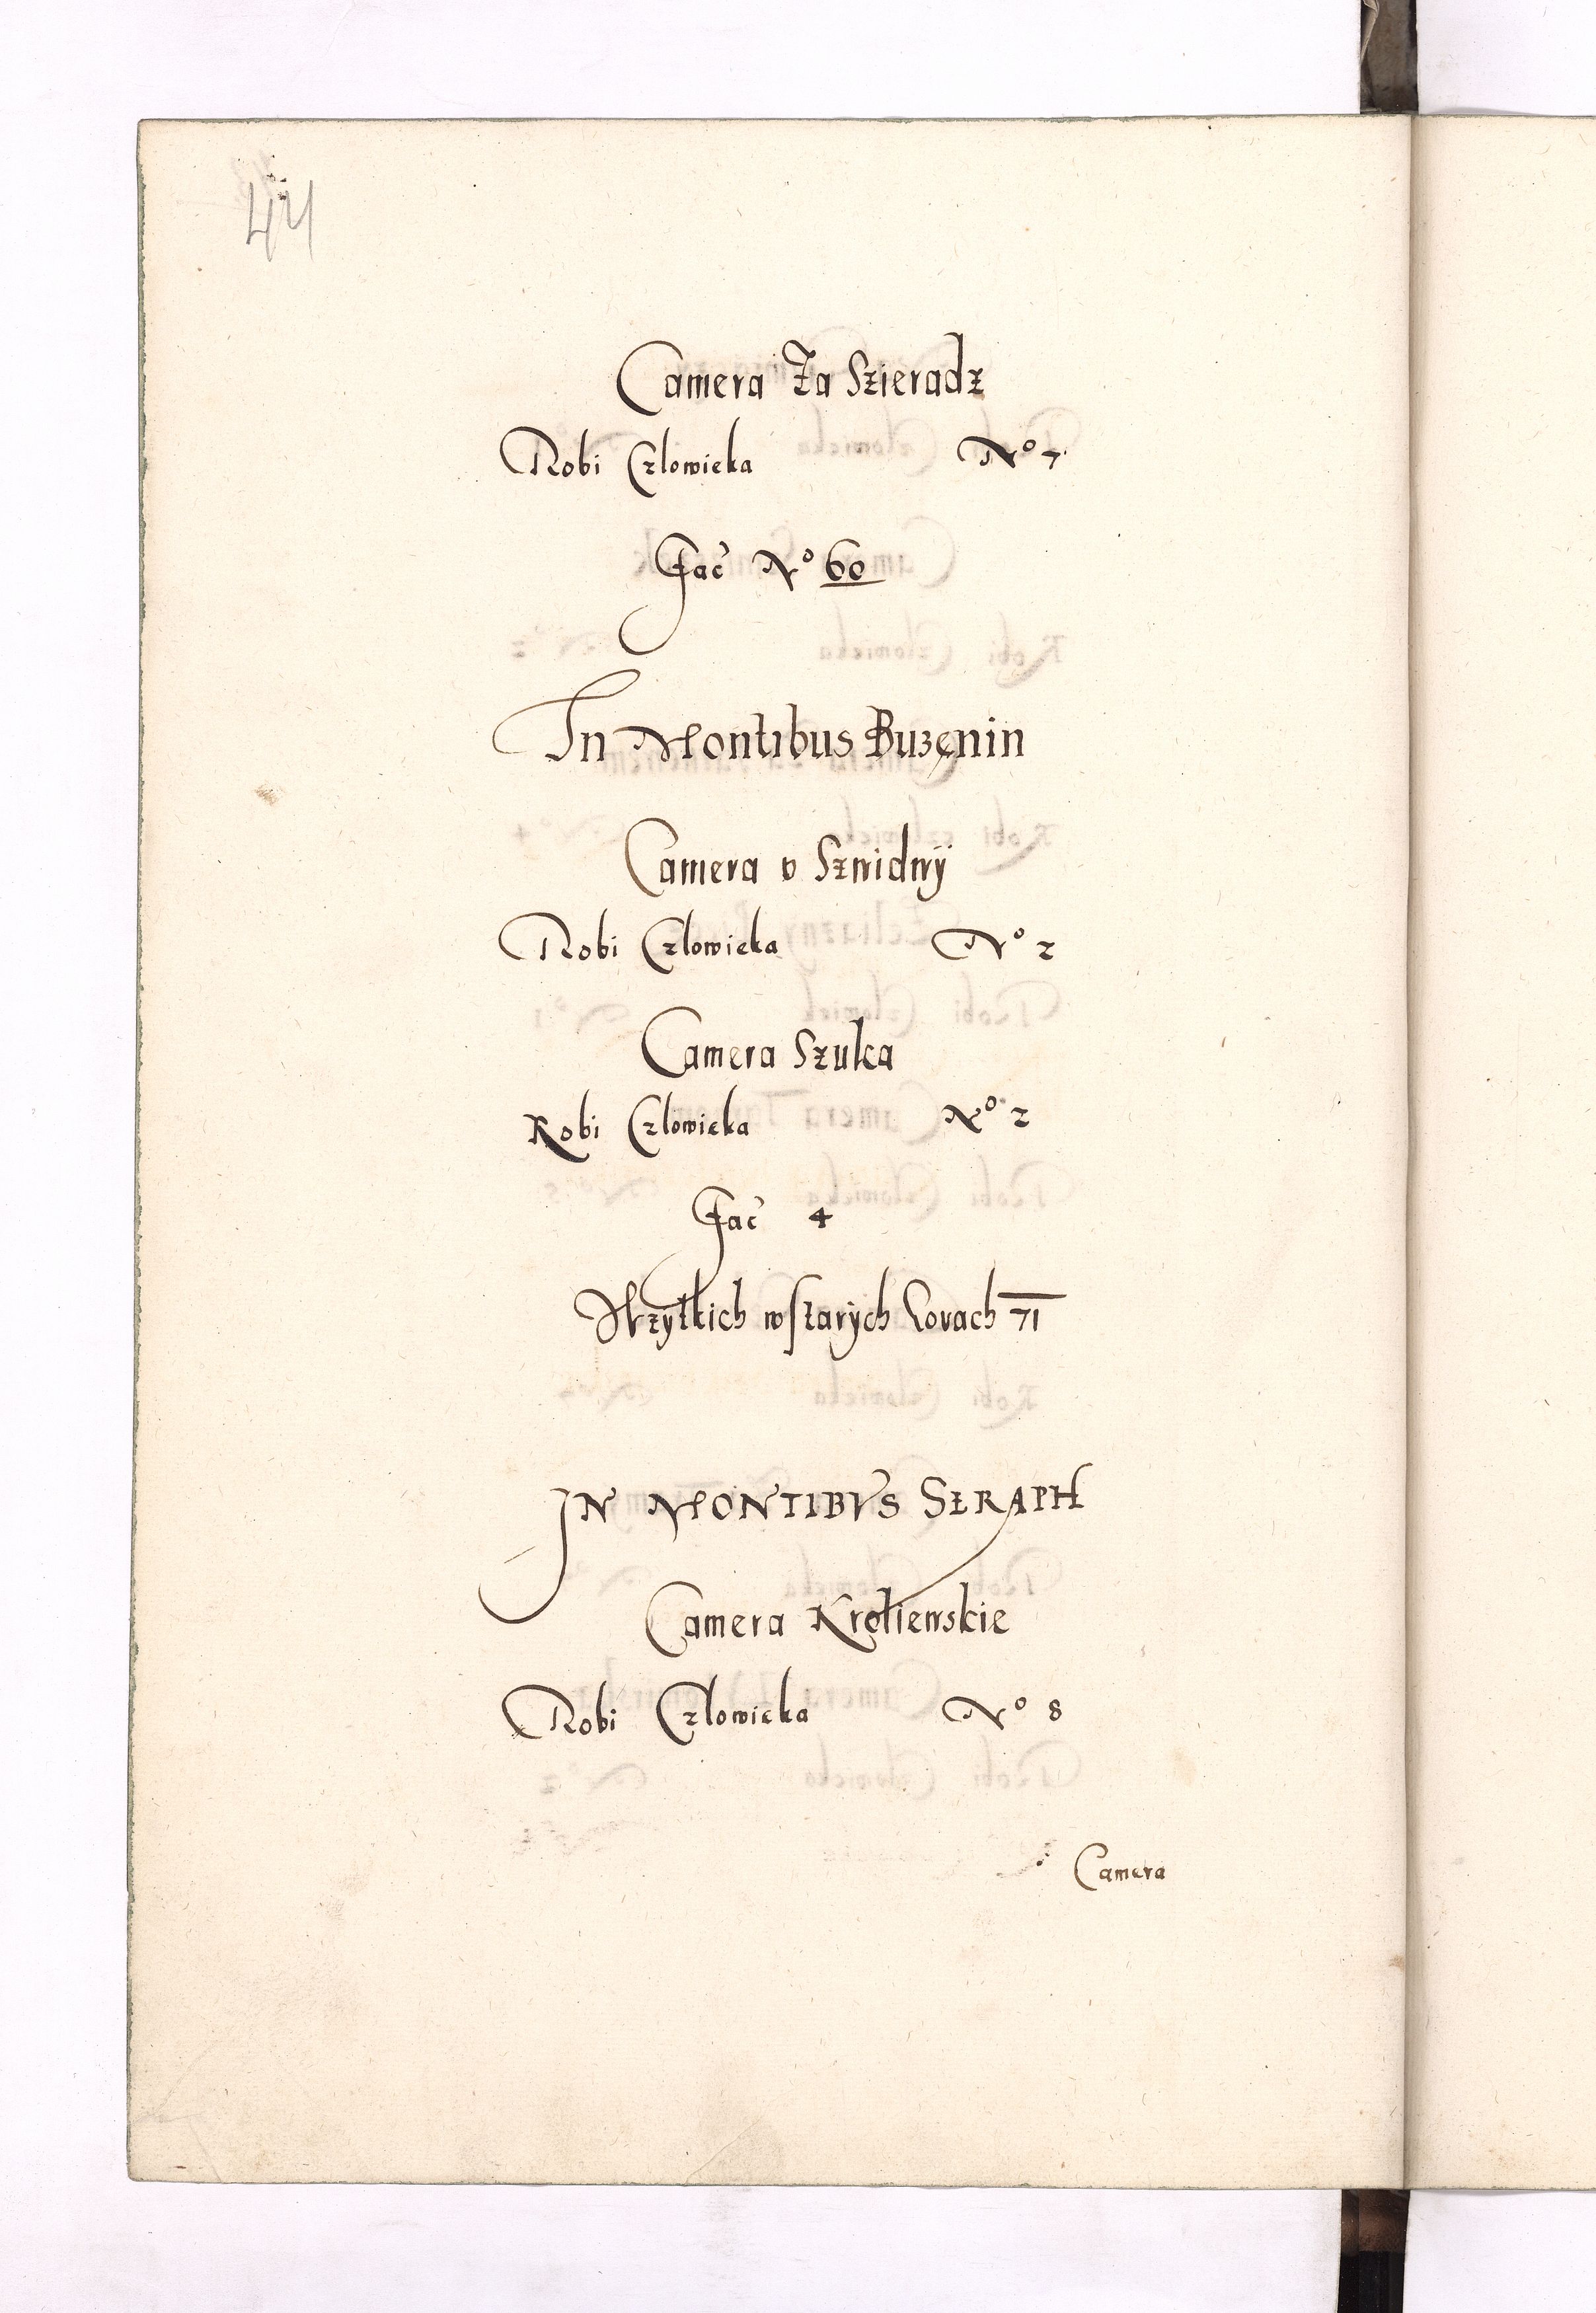 44
Camera Za Szieradz
Robi Człowieka No 7
Fac No 60
In Montibus Buzenin
Camera v Szwidwÿ
Robi Człowieka No 2
Camera Szuka
Robi Człowieka No 2
Fac 4
Wzytkich w starÿch Gorach 71
IN MONTIBVS SERAPH
Camera Krolewskie
Robi Człowieka No 8
Camera